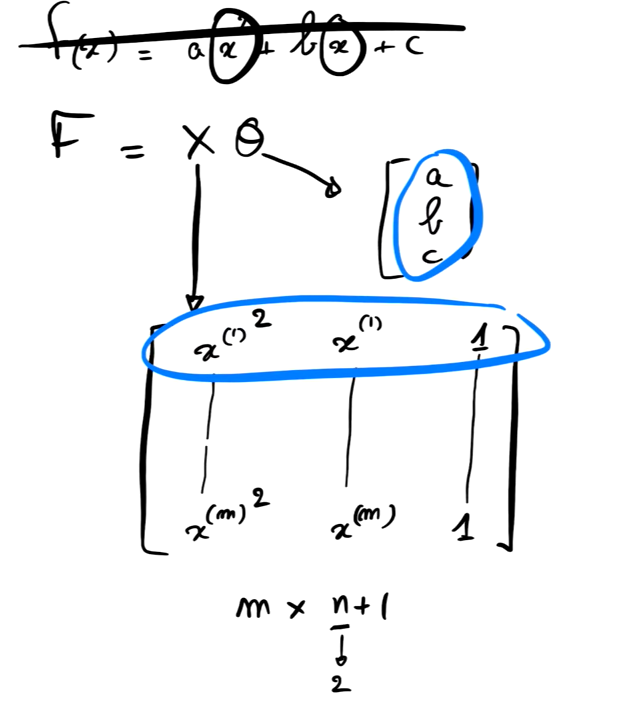 f(x) = a x² + b x + c
F = X θ
a
b
c
x⁽¹⁾² x⁽¹⁾ 1
x⁽ᵐ⁾² x⁽ᵐ⁾ 1
m × n+1
2